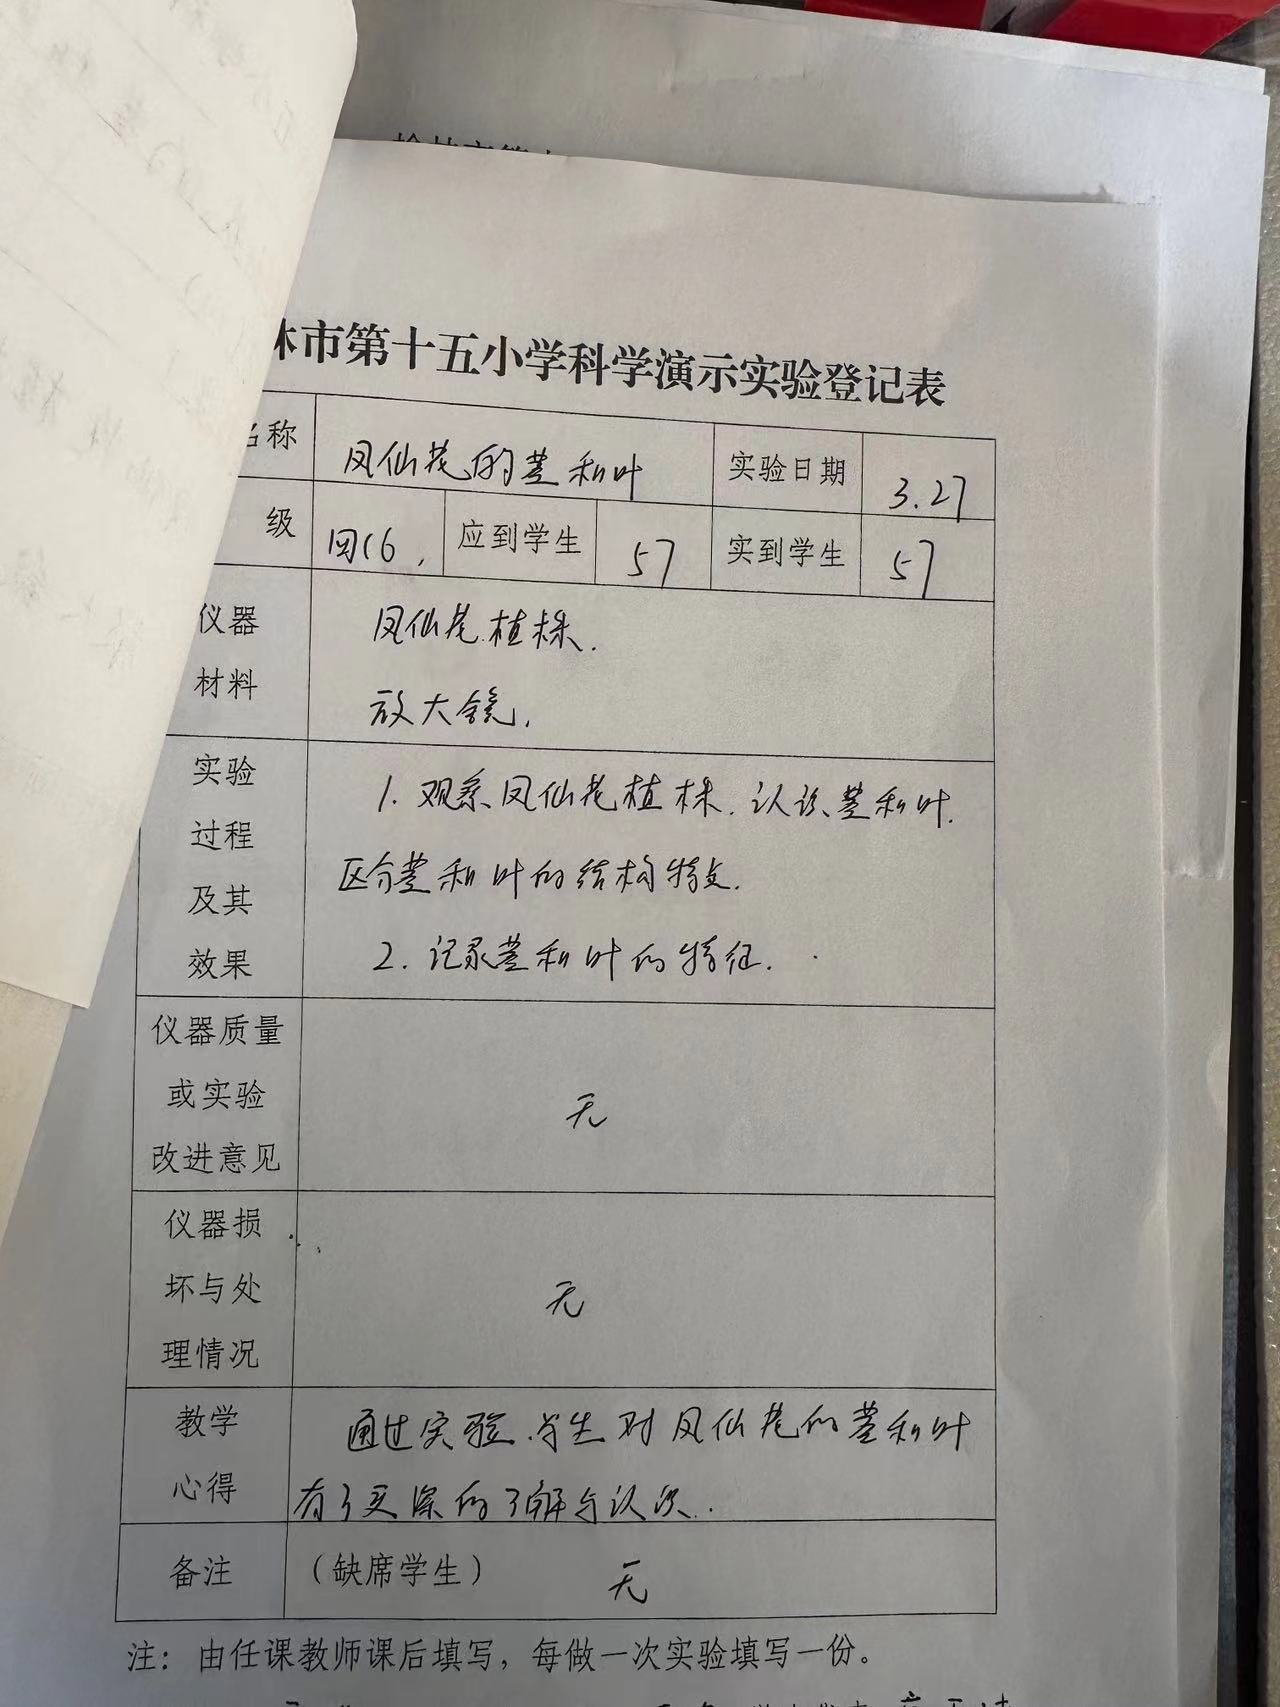 林市第十五小学科学演示实验登记表
名称 凤仙花的茎和叶 实验日期 3.27
级 四(6) 应到学生 57 实到学生 57
仪器 凤仙花植株.
材料 放大镜.
实验 1. 观察凤仙花植株.认识茎和叶.
过程
及其 区分茎和叶的结构特点.
效果 2. 记录茎和叶的特征.
仪器质量
或实验 无
改进意见
仪器损
坏与处 无
理情况
教学 通过实验.学生对凤仙花的茎和叶
心得 有了更深的了解与认识.
备注 (缺席学生) 无
注：由任课教师课后填写，每做一次实验填写一份。